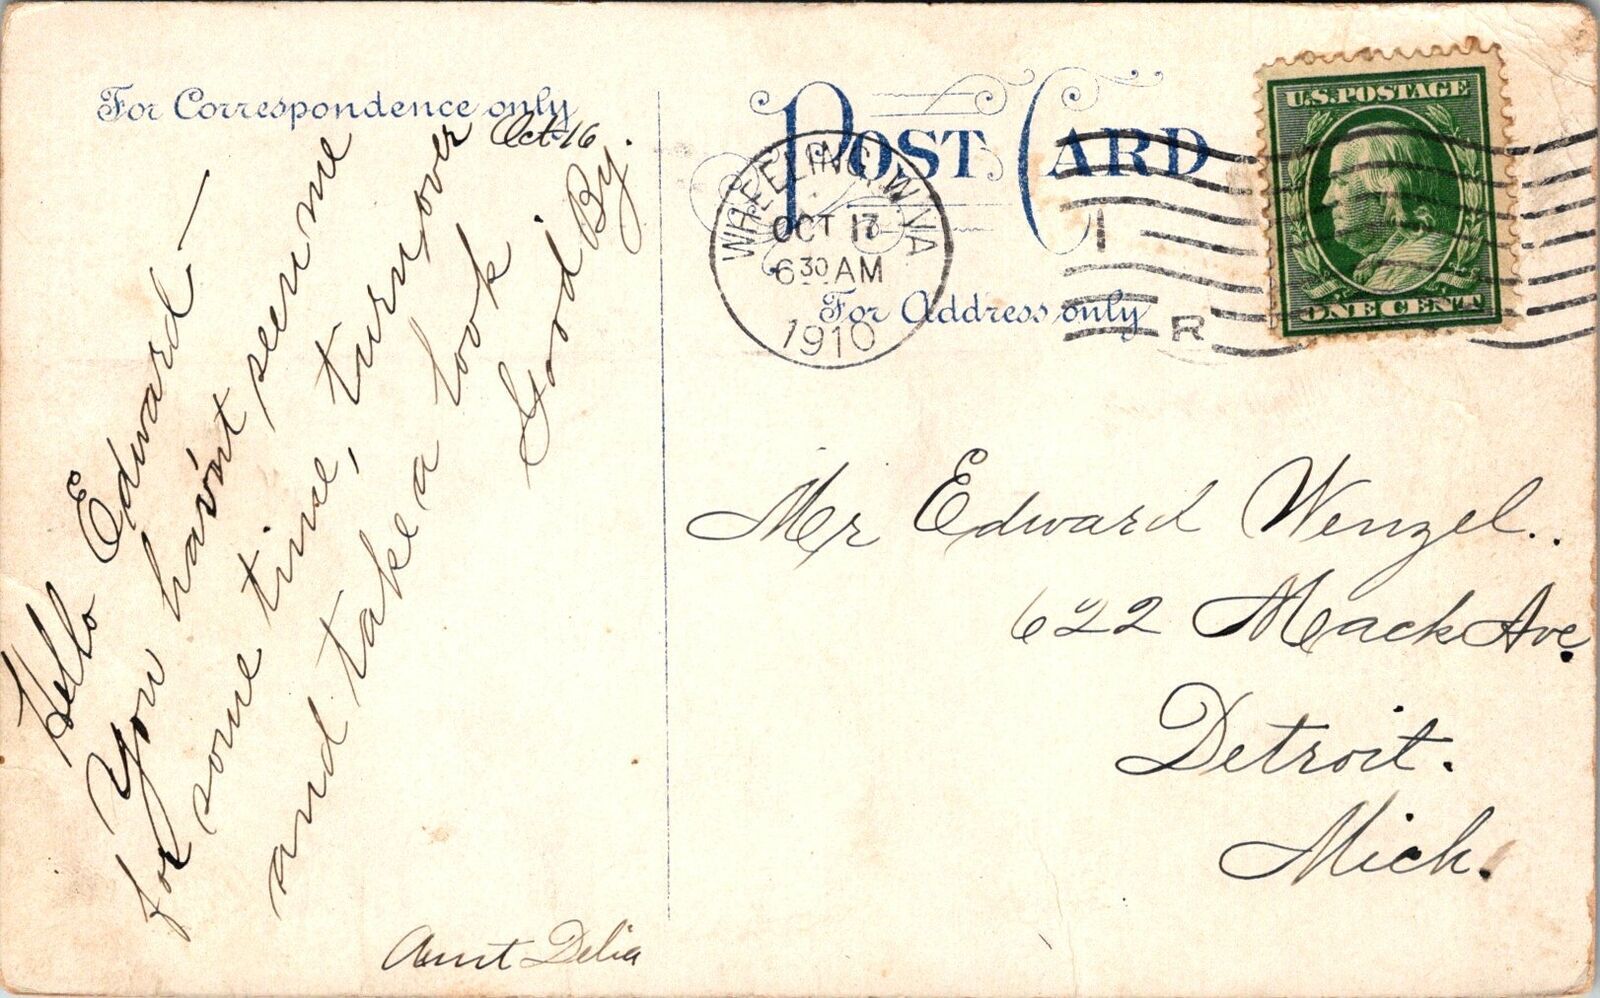 For Correspondence only
Oct-16
Hello Edward—
You hav'nt seen me
for some time, turn over
and take a look
Good By.
Aunt Delia
POST CARD
For Address only
WHEELING, W.VA
OCT 17
6 30 AM
1910
1
R
U.S. POSTAGE
ONE CENT
Mr Edward Wenzel..
622 Mack Ave.
Detroit.
Mich.